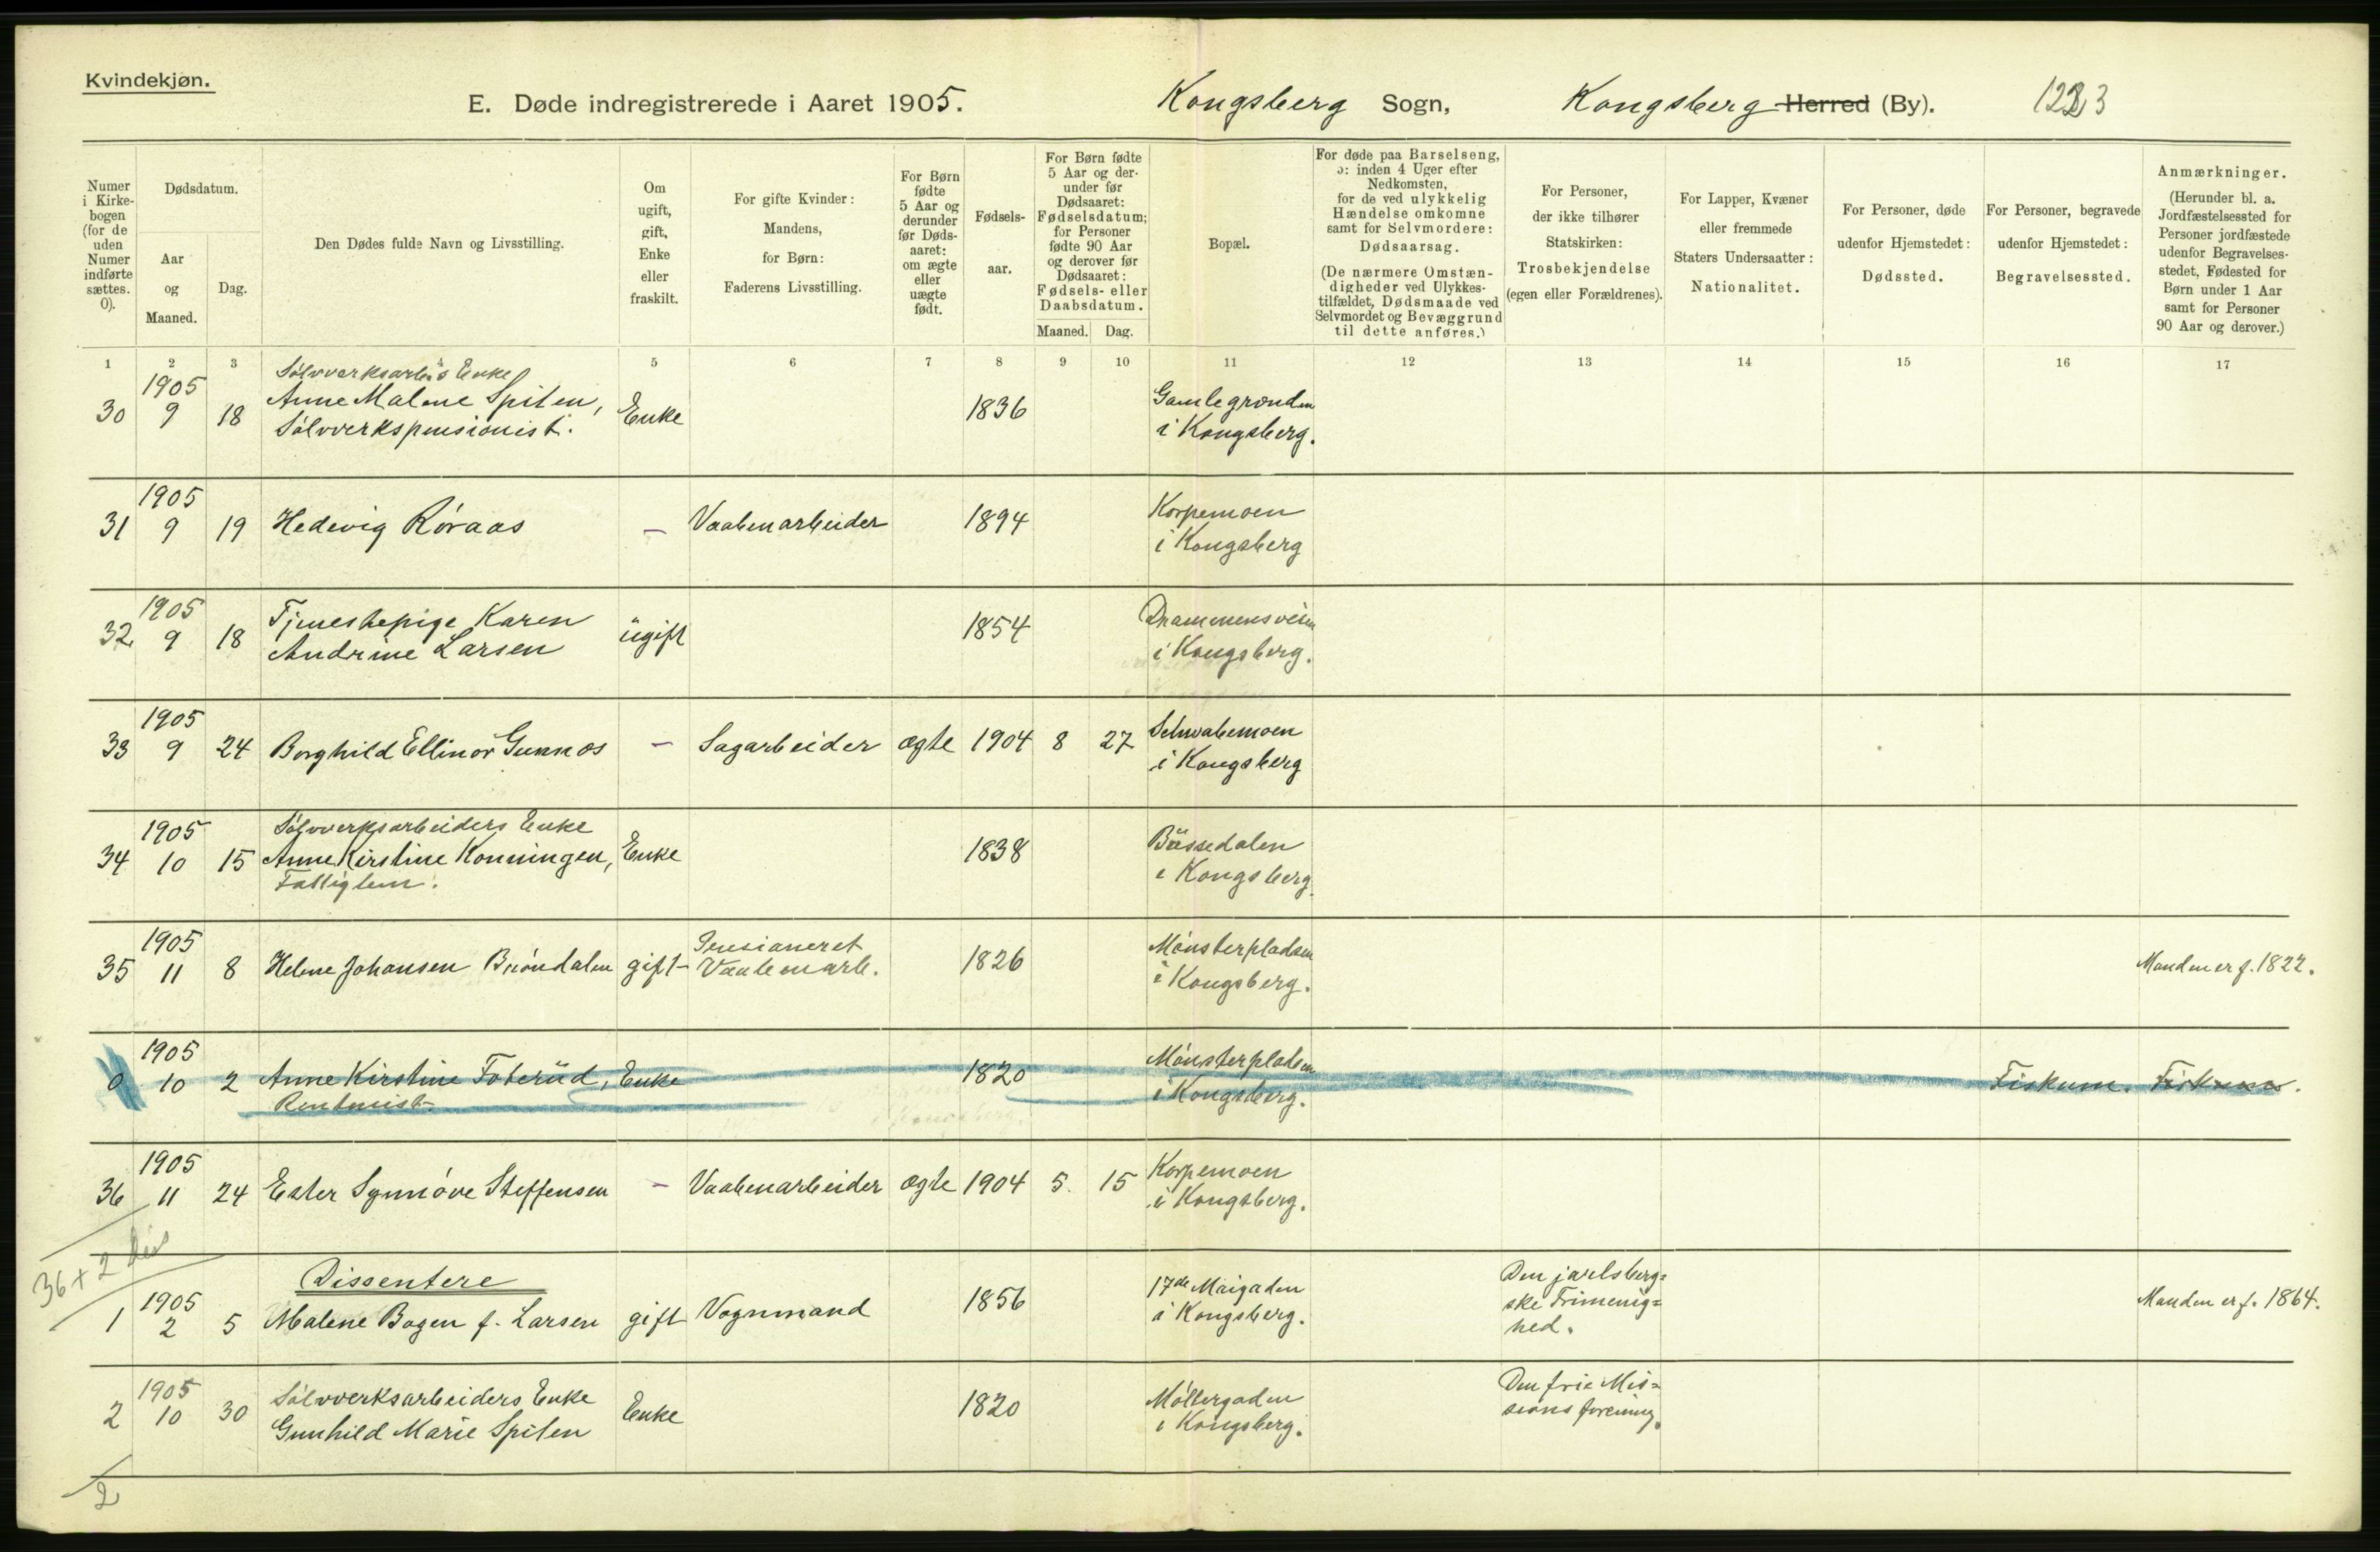 Kvindekjøn.
E. Døde indregistrerede i Aaret 1905. Kongsberg Sogn, Kongsberg Herred (By). 1223
Numer i Kirkebogen (for de uden Numer indførte sættes. 0).
Dødsdatum.
Aar og Maaned.
Dag.
Den Dødes fulde Navn og Livsstilling.
Om ugift, gift, Enke eller fraskilt.
For gifte Kvinder: Mandens, for Børn: Faderens Livsstilling.
For Børn fødte 5 Aar og derunder før Dødsaaret: om ægte eller uægte født.
Fødselsaar.
For Børn fødte 5 Aar og derunder før Dødsaaret: Fødselsdatum; for Personer fødte 90 Aar og derover før Dødsaaret: Fødsels- eller Daabsdatum.
Maaned. Dag.
Bopæl.
For døde paa Barselseng, ɔ: inden 4 Uger efter Nedkomsten, for de ved ulykkelig Hændelse omkomne samt for Selvmordere: Dødsaarsag.
(De nærmere Omstændigheder ved Ulykkestilfældet, Dødsmaade ved Selvmordet og Bevæggrund til dette anføres.)
For Personer, der ikke tilhører Statskirken: Trosbekjendelse (egen eller Forældrenes).
For Lapper, Kvæner eller fremmede Staters Undersaatter: Nationalitet.
For Personer, døde udenfor Hjemstedet: Dødssted.
For Personer, begravede udenfor Hjemstedet: Begravelsessted.
Anmærkninger.
(Herunder bl. a. Jordfæstelsessted for Personer jordfæstede udenfor Begravelsesstedet, Fødested for Børn under 1 Aar samt for Personer 90 Aar og derover.)
1 2 3 4 5 6 7 8 9 10 11 12 13 14 15 16 17
1905 Sølvverksarb.s Enke
30 9 18 Anne Malene Spiten, Enke 1836 Gamlegronden
Sølvverkspensionist. i Kongsberg.
1905
31 9 19 Hedevig Røraas – Vaabenarbeider 1894 Korpemoen
i Kongsberg
1905 Tjenestepige Karen Drammensveien
32 9 18 Andrine Larsen ugift 1854 i Kongsberg.
1905
33 9 24 Borghild Ellinor Gunnos – Sagarbeider ægte 1904 8 27 Schwabemoen
i Kongsberg
1905 Sølvverksarbeiders Enke
34 10 15 Anne Kirstine Konningen, Enke 1838 Bussedalen
Fattiglem. i Kongsberg.
1905 Pensioneret
35 11 8 Helene Johansen Brøndalen gift Vaabenarb. 1826 Mønsterpladsen Manden er f. 1822.
i Kongsberg.
1905
0 10 2 Anne Kirstine Foterud, Enke 1820 Mønsterpladsen Fiskum. Fiskum.
Rentenist i Kongsberg.
1905
36 11 24 Ester Synnøve Steffensen – Vaabenarbeider ægte 1904 5. 15 Korpemoen
i Kongsberg.
36 + 2
Dissentere
1905
1 2 5 Malene Bogen f. Larsen gift Vognmand 1856 17de Maigaden Den jarlsberg= Manden er f. 1864.
i Kongsberg. ske Frimenig=
hed.
1905 Sølvverksarbeiders Enke
2 10 30 Gunhild Marie Spiten Enke 1820 Møllergaden Den frie Mis=
i Kongsberg. sionsforening.
2